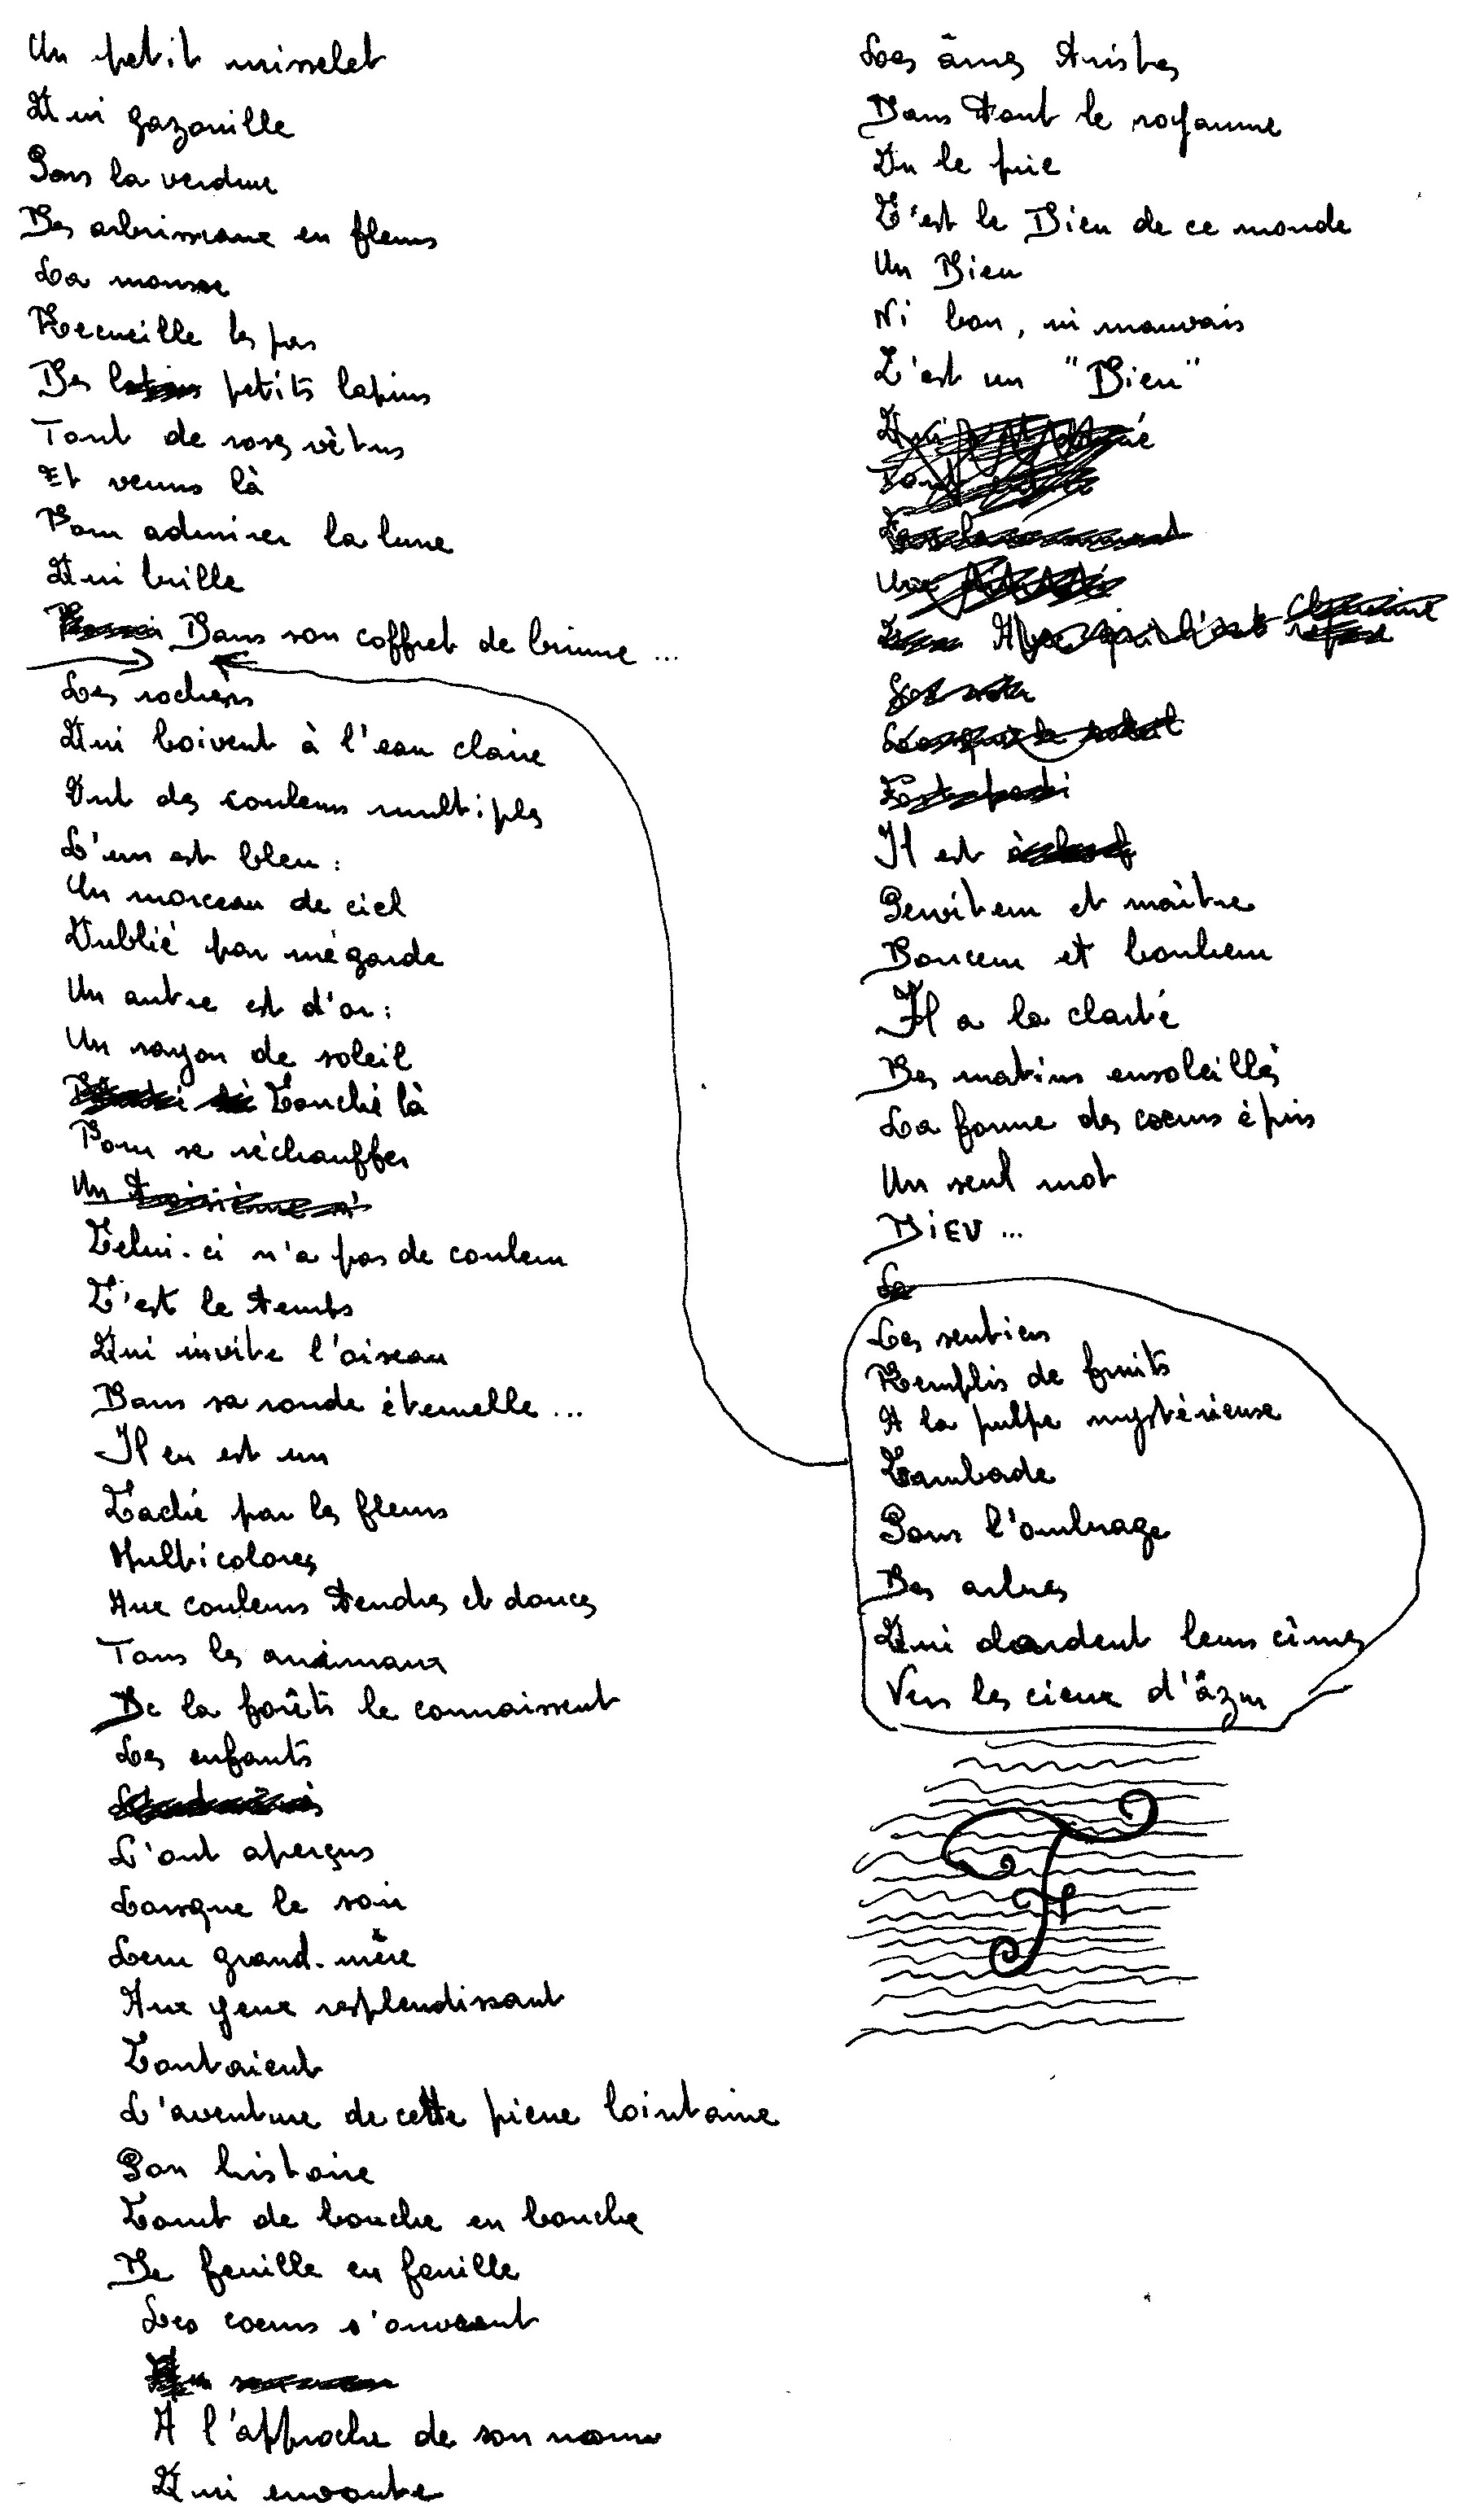 Un petit ruisselet
Qui gazouille
Sous la verdure
Des arbrisseaux en fleurs
La mousse
Recueille les pas
Des petits lapins
Tout de roses vètus
Et venus là
Pour admirer la lune
Qui brille
Dans son coffret de brume ...
Les rochers
Qui boivent à l'eau claire
Ont des couleurs multiples
L'un est bleu :
Un morceau de ciel
Oublié par mégarde
Un autre est d'or :
Un rayon de soleil
Couché là
Pour se réchauffer
Un troisième n'
Celui-ci n'a pas de couleur
C'est le temps
Qui invite l'oiseau
Dans sa ronde éternelle ...
Il en est un
Caché par les fleurs
Multicolores
Aux couleurs tendres et douces
Tous les animaux
De la forêts le connaissent
Les enfants
L'ont aperçus
Lorsque le soir
Leur grand-mère
Aux yeux resplendissant
Contaient
L'aventure de cette pierre lointaine
Son histoire
Court de bouche en bouche
De feuille en feuille
Les coeurs s'ouvrent
A l'approche de son nom
Qui envoute
Les âmes tristes
Dans tout le royaume
On le prie
C'est le Dieu de ce monde
Un Dieu
Ni bon, ni mauvais
C'est un "Dieu"
Il est
Serviteur et maître
Douceur et bonheur
Il a la clarté
Des matins ensoleillés
La forme des coeurs épris
Un seul mot
DIEU ...
Les sentiers
Remplis de fruits
A la pulpe mystérieuse
Cambade
Sous l'ombrage
Des arbres
Qui dardent leurs cîmes
Vers les cieux d'âzur